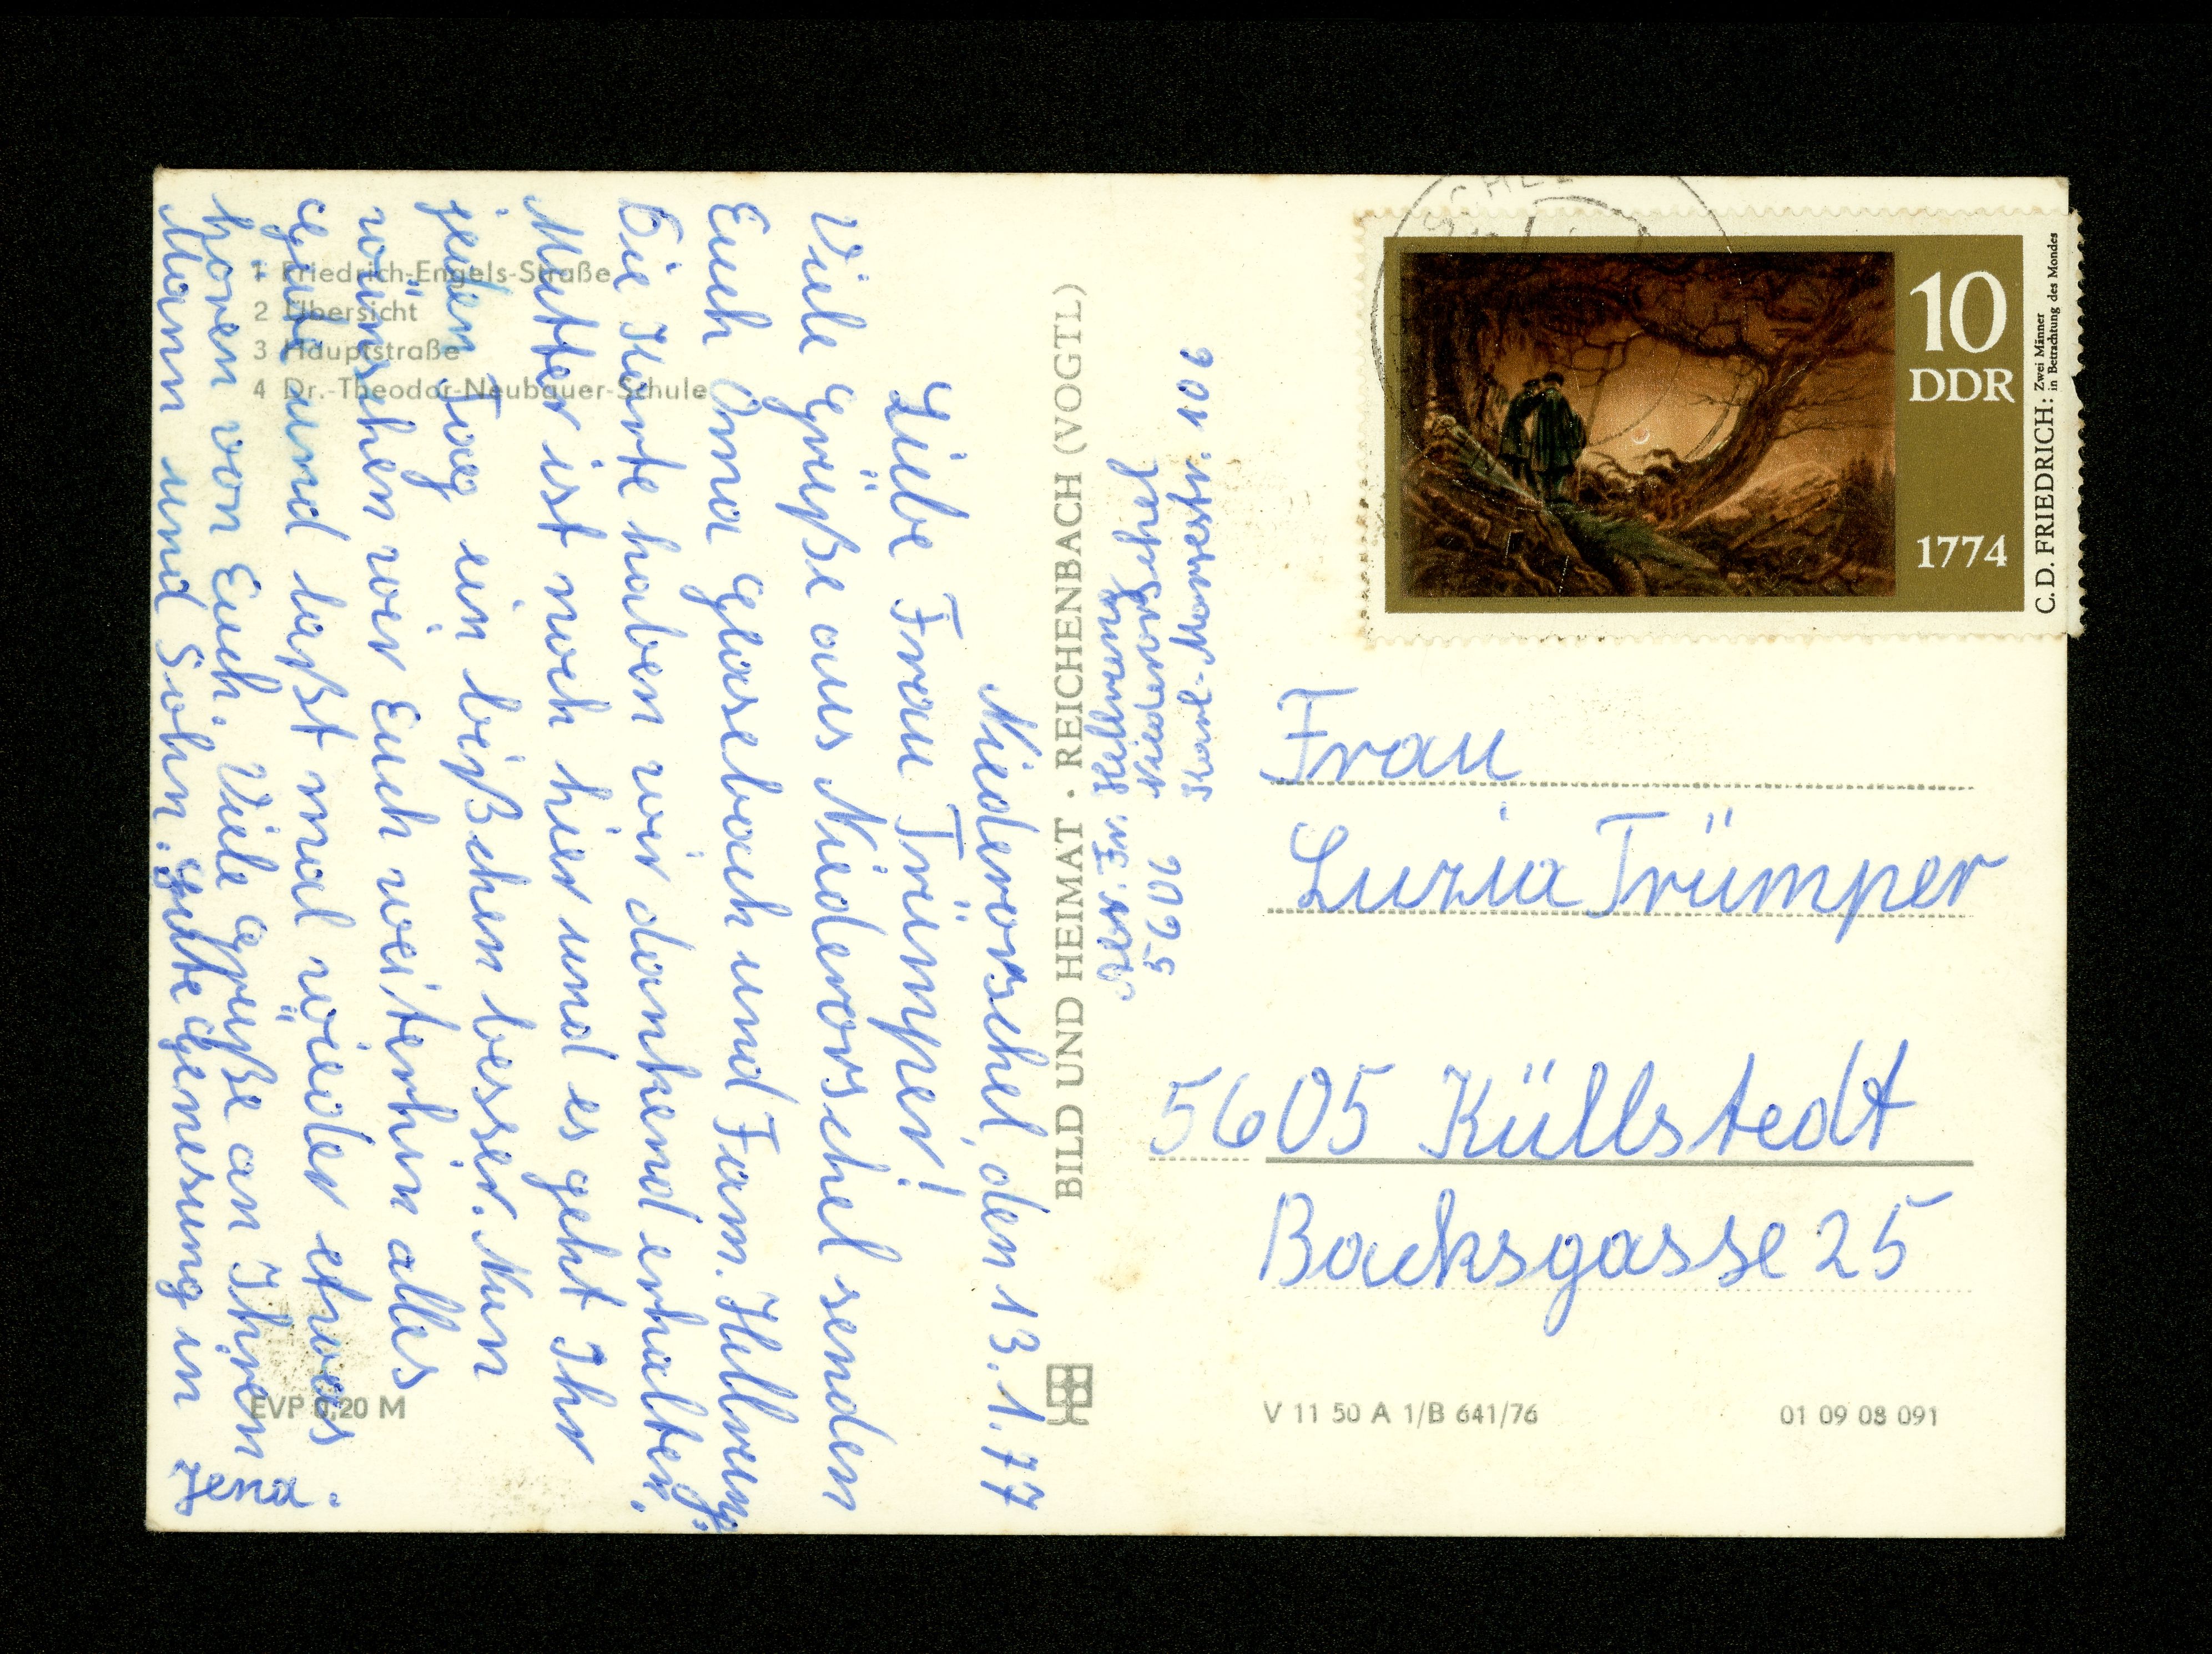 Niederorschel, den 13.1.77
Liebe Frau Trümper!
Viele Grüße aus Niederorschel senden
Euch Oma Glasebach und Fam. Hellrung.
Die Karte haben wir dankend erhalten.
Mutter ist noch hier und es geht Ihr
jeden Tag ein bißchen besser. Nun
wünschen wir Euch weiterhin alles
Gute und laßt mal wieder etwas
hören von Euch. Viele Grüße an Ihren
Mann und Sohn. Gute Genesung in
Jena.
1 Friedrich-Engels-Straße
2 Übersicht
3 Hauptstraße
4 Dr.-Theodor-Neubauer-Schule
EVP 0,20 M
BILD UND HEIMAT · REICHENBACH (VOGTL)
Hellrung
5606 Niederorschel
Karl-Marxstr. 106
10
DDR
1774
C. D. FRIEDRICH: Zwei Männer
in Betrachtung des Mondes
Frau
Luzia Trümper
5605 Küllstedt
Backsgasse 25
V 11 50 A 1/B 641/76
01 09 08 091